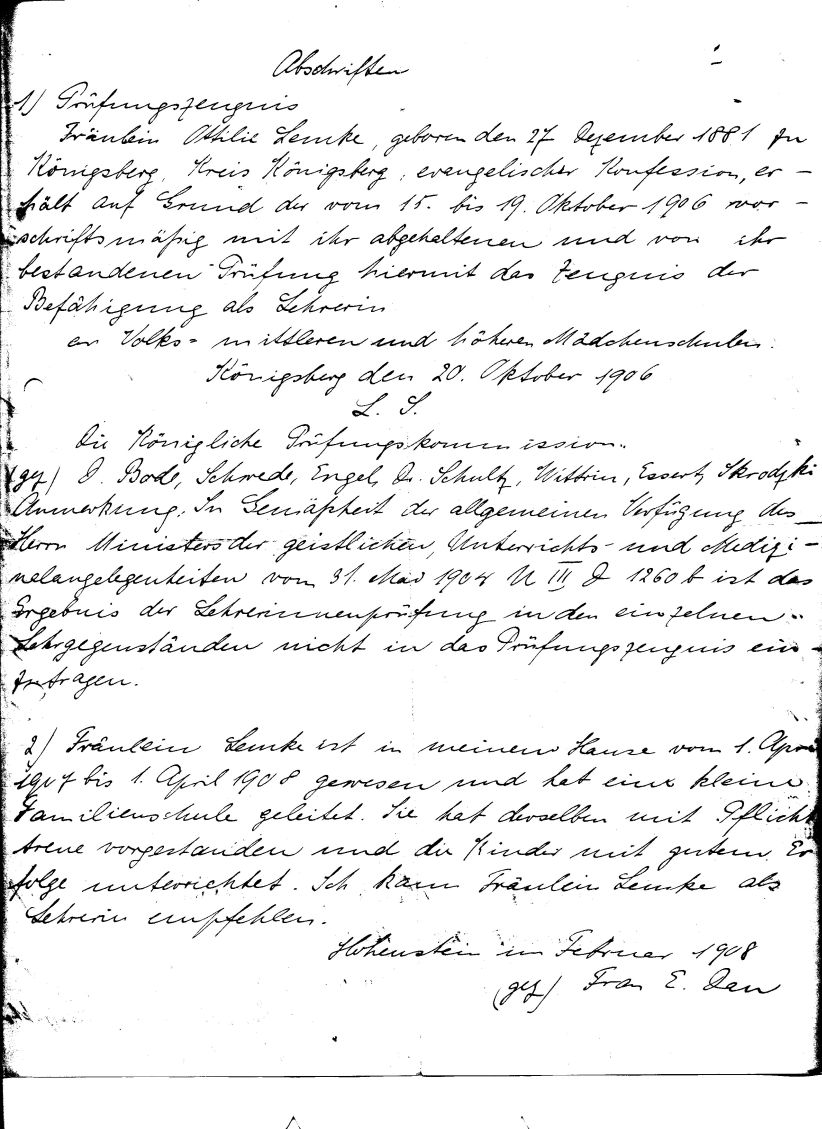 Abschriften
1) Prüfungszeugnis
Fräulein Ottilie Lemke, geboren den 27 Dezember 1881 zu
Königsberg, Kreis Königsberg, evangelischer Konfession, er-
hält auf Grund der vom 15. bis 19. Oktober 1906 vor-
schriftsmäßig mit ihr abgehaltenen und von ihr
bestandenen Prüfung hiermit das Zeugnis der
Befähigung als Lehrerin
an Volks- mittleren und höheren Mädchenschulen.
Königsberg den 20. Oktober 1906
L. S.
Die Königliche Prüfungskommission.
(gez) D. Bode, Schwede, Engel, Dr. Schultz, Wittrin, Essert, Skrodzki
Anmerkung. In Gemäßheit der allgemeinen Verfügung des
Herrn Ministers der geistlichen, Unterrichts- und Medizi-
nalangelegenheiten vom 31. Mai 1904 U III D 1260 b ist das
Ergebnis der Lehrerinnenprüfung in den einzelnen
Lehrgegenständen nicht in das Prüfungszeugnis ein-
zutragen.
2) Fräulein Lemke ist in meinem Hause vom 1. April
1907 bis 1. April 1908 gewesen und hat eine kleine
Familienschule geleitet. Sie hat derselben mit Pflicht
treue vorgestanden und die Kinder mit gutem Er
folge unterrichtet. Ich kann Fräulein Lemke als
Lehrerin empfehlen.
Hohenstein im Februar 1908
(gez) Frau E. Dau